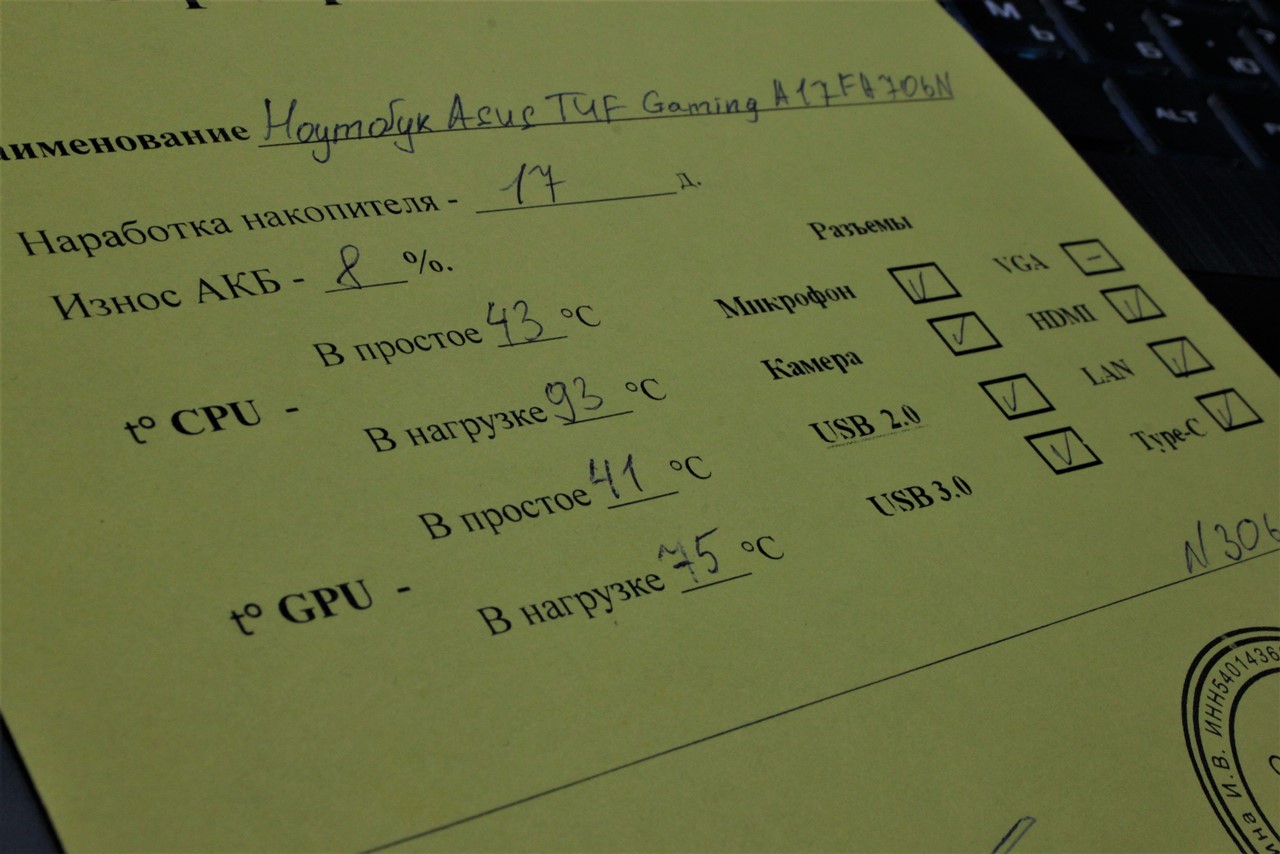 аименование Ноутбук Asus TUF Gaming A17FA706N
Наработка накопителя - 17 д.
Износ АКБ - 8 %.
t° CPU -
В простое 43 °C
В нагрузке 93 °C
t° GPU -
В простое 41 °C
В нагрузке 75 °C
Разъемы
Микрофон ✓ VGA –
Камера ✓ HDMI ✓
USB 2.0 ✓ LAN ✓
USB 3.0 ✓ Type-C ✓
N306
ина И.В. ИНН5401436
М
Ь
Б
Ю
ALT